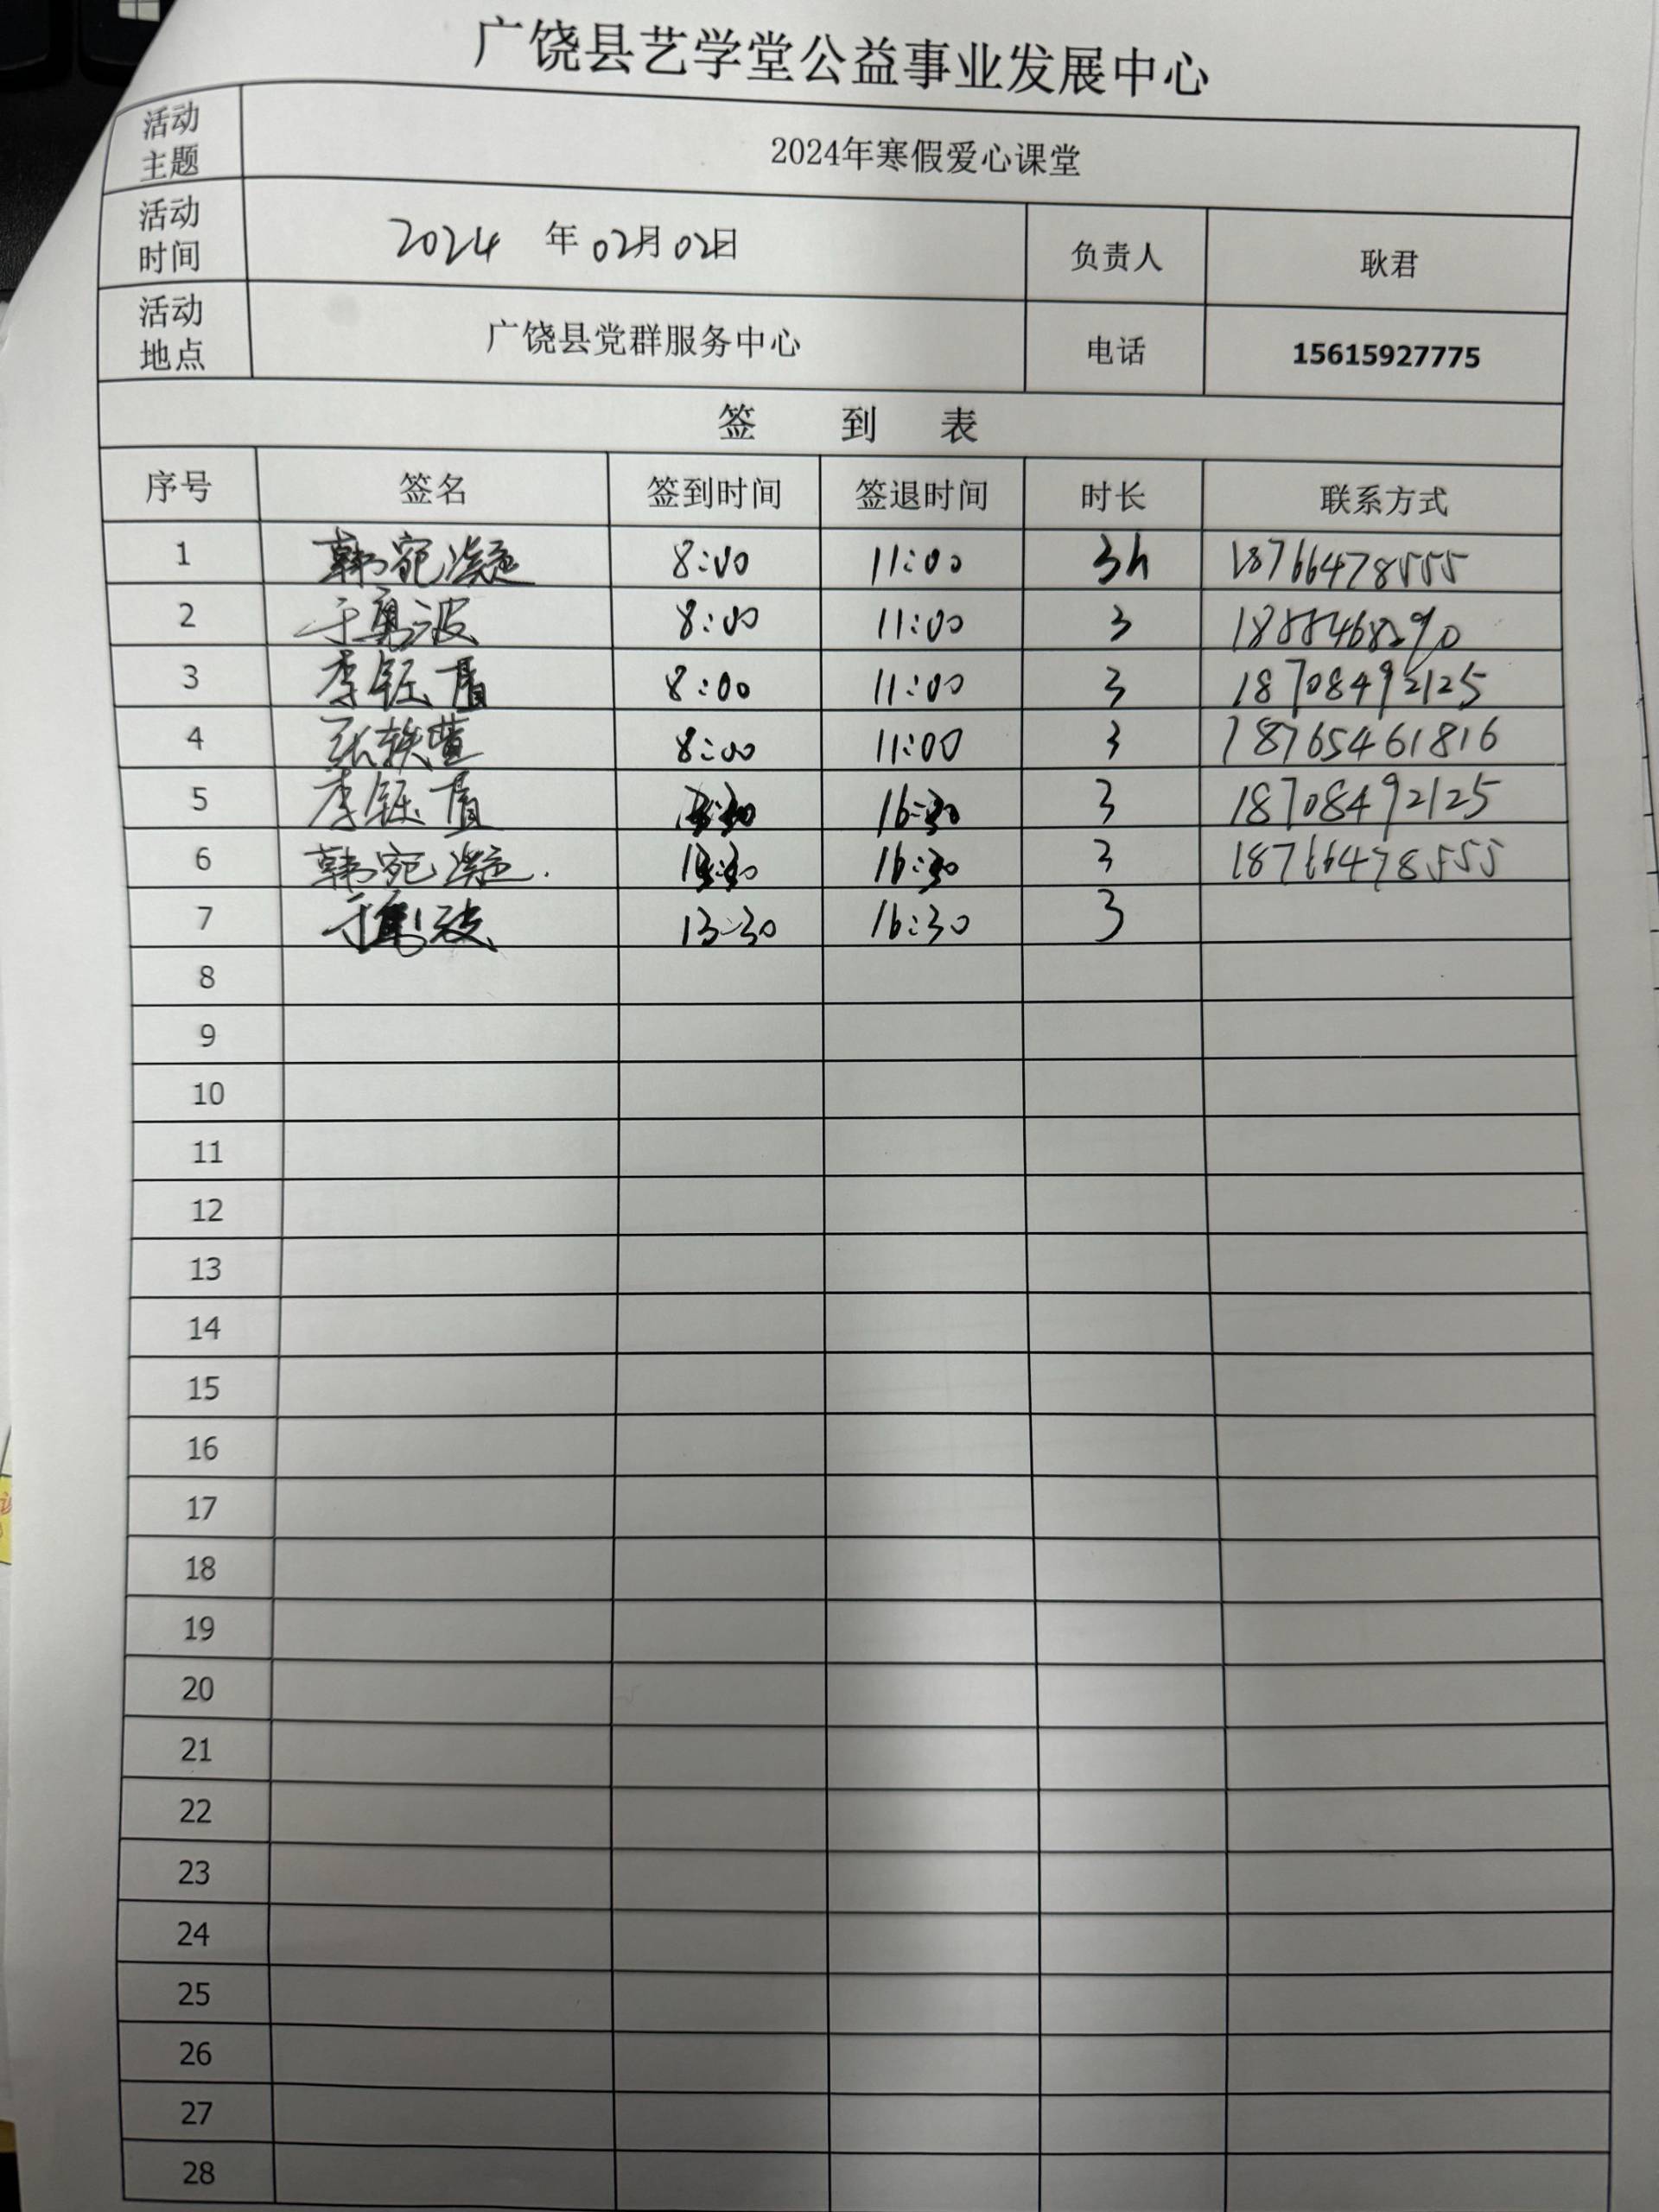 广饶县艺学堂公益事业发展中心
活动主题 2024年寒假爱心课堂
活动时间 2024 年 02月 02日 负责人 耿君
活动地点 广饶县党群服务中心 电话 15615927775
签 到 表
序号 签名 签到时间 签退时间 时长 联系方式
1 韩宛凝 8:00 11:00 3h 18766478555
2 于勇波 8:00 11:00 3
3 李钰 8:00 11:00 3 18708492125
4 张轶萱 8:00 11:00 3 18765461816
5 李钰 13:30 16:30 3 18708492125
6 韩宛凝. 13:30 16:30 3 18766478555
7 于勇波 13:30 16:30 3
8
9
10
11
12
13
14
15
16
17
18
19
20
21
22
23
24
25
26
27
28